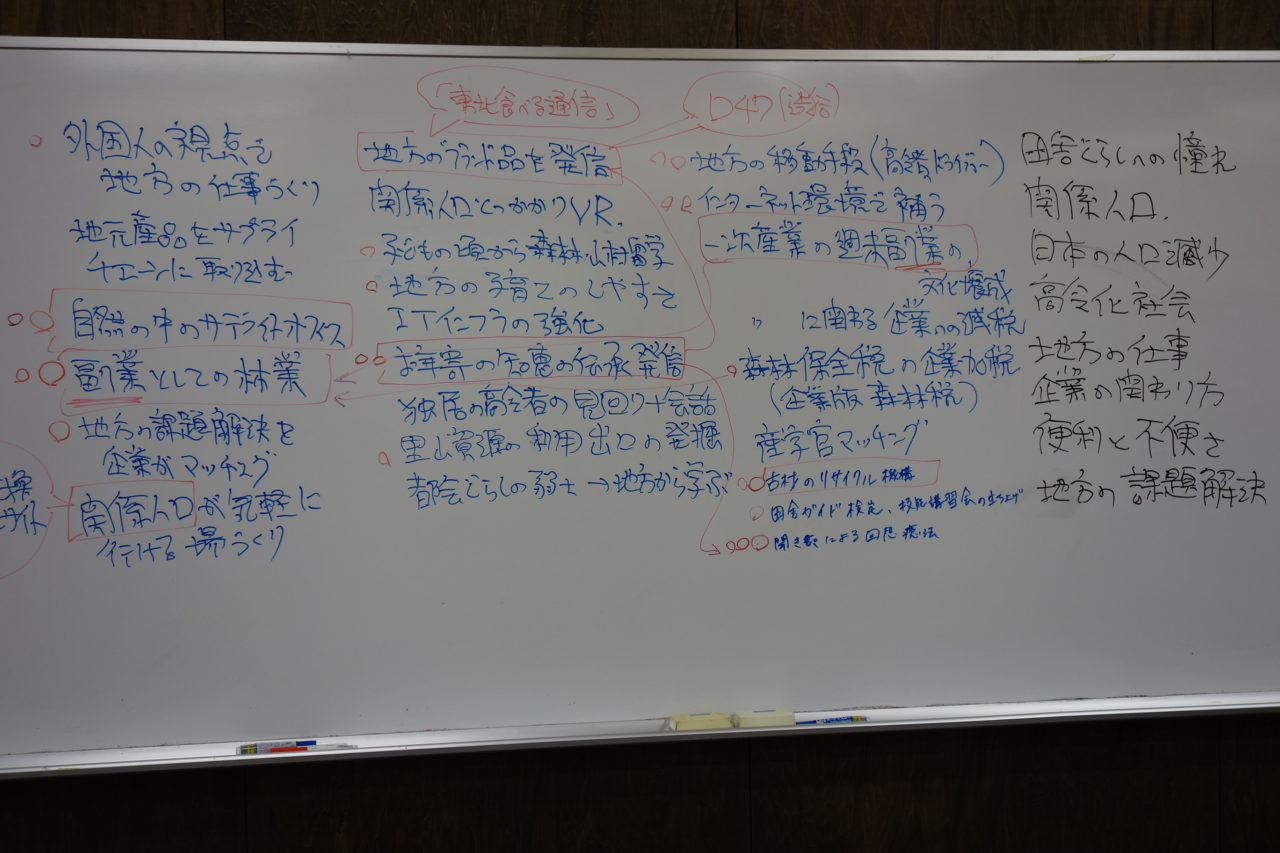 外国人の視点で
地方の仕事づくり
地元産品をサプライ
チェーンに取り込む
自然の中のサテライトオフィス
副業としての林業
地方の課題解決を
企業がマッチング
関係人口が気軽に
行ける場づくり
サイト
「東北食べる通信」
地方のブランド品を発信
関係人口とっかかりVR.
子どもの頃から森林・山村留学
地方の子育てのしやすさ
ITインフラの強化
お年寄の知恵の伝承発信
独居の高令者の見回り+会話
里山資源の利用出口の発掘
都会ぐらしの弱さ→地方から学ぶ
D47
地方の移動手段(高齢者ドライバー)
インターネット環境で補う
一次産業の週末副業の,
文化醸成
〃 に関わる企業への減税
森林保全税の企業加税
(企業版森林税)
産学官マッチング
古材のリサイクル機構
田舎ガイド検定、技能講習会の立ち上げ
聞き書による回想療法
田舎ぐらしへの憧れ
関係人口.
日本の人口減少
高令化社会
地方の仕事
企業の関わり方
便利と不便さ
地方の課題解決